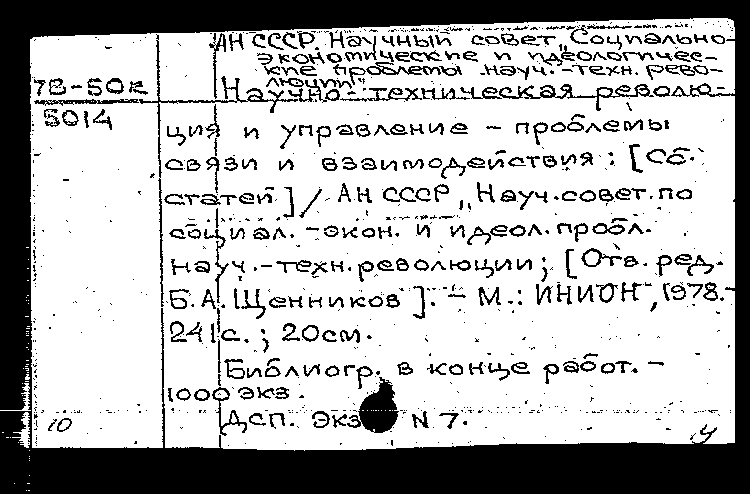 АН СССР. Научный совет „Социально-
экономические и идеологичес-
кие проблемы науч.-техн. рево-
люции".
78-50к
Научно-техническая револю-
5014
ция и управление – проблемы
связи и взаимодействия: [Сб.
статей] / АН СССР, Науч. совет по
социал.-экон. и идеол. пробл.
науч.-техн. революции; [Отв. ред.
Б.А. Щенников]. – М.: ИНИОН, 1978.-
241 с.; 20 см.
Библиогр. в конце работ. –
1000 экз.
ДСП. Экз N 7.
10